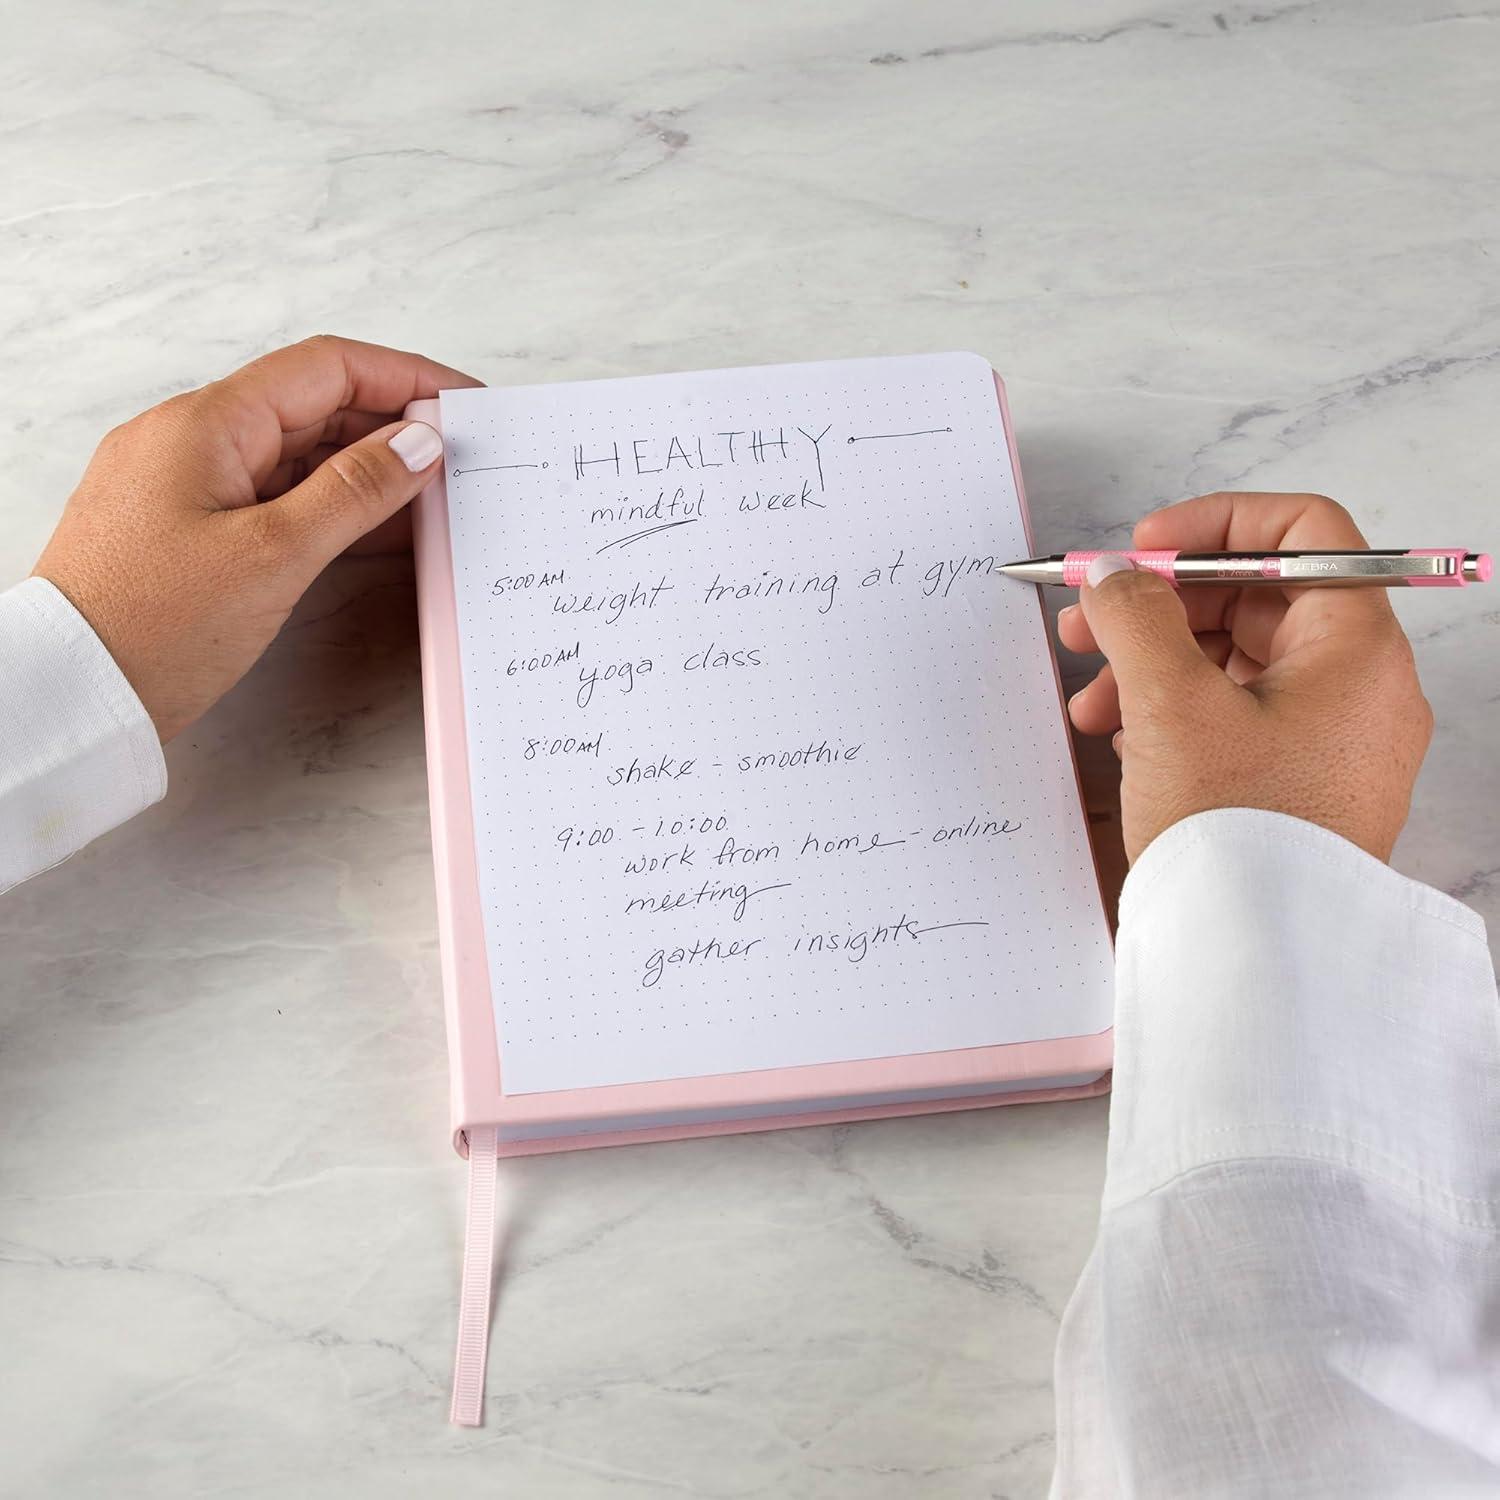 HEALTHY
mindful week
5:00 AM
weight training at gym
6:00 AM
yoga class
8:00 AM
shake - smoothie
9:00 - 10:00
work from home - online
meeting
gather insights
0.7mm ZEBRA